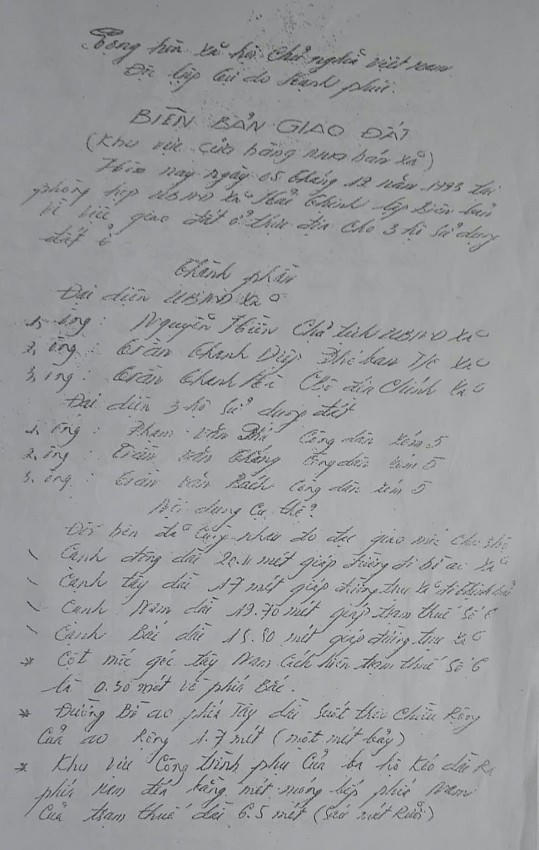 Cộng hòa xã hội chủ nghĩa việt nam
Độc lập tự do Hạnh phúc
BIÊN BẢN GIAO ĐẤT
(Khu vực cửa hàng mua bán xã)
Hôm nay ngày 05 tháng 12 năm 1993 tại
phòng họp UBND xã Hải Chính lập biên bản
về việc giao đất ở thực địa cho 3 hộ sử dụng
đất ở
Thành phần
Đại diện UBND xã
1, ông: Nguyễn Hiên Chủ tịch UBND xã
2, ông: Trần Thanh Phó ban xã
3, ông: Trần Thanh Cán bộ địa Chính xã
Đại diện 3 hộ sử dụng đất
1. ông: Phạm Văn Phú Công dân xóm 5
2. ông: Trần Văn Thắng Công dân xóm 5
3. ông: Trần Văn Bách Công dân xóm 5
Nội dung cụ thể
Đôi bên đã cùng nhau đo đạc giao mốc cho 3 hộ
\ Cạnh đông dài mét giáp đường đi bờ ao xã
\ Cạnh tây dài 17 mét giáp đường xã đi
\ Cạnh Nam dài 19.70 mét giáp trạm thuế số 6
\ Cạnh Bắc dài mét giáp đường xã
* Cột mốc góc tây Nam Cách hiên trạm thuế số 6
là 0.50 mét về phía Bắc.
* Đường Bờ ao phía Tây dài suốt theo chiều Rộng
Của ao Rộng 1.7 mét (một mét bảy)
* Khu vực Công trình phụ Của ba hộ Kéo dài Ra
phía Nam đến bằng mét móng bếp phía Nam
Của trạm thuế dài 6.5 mét (sáu mét Rưỡi)